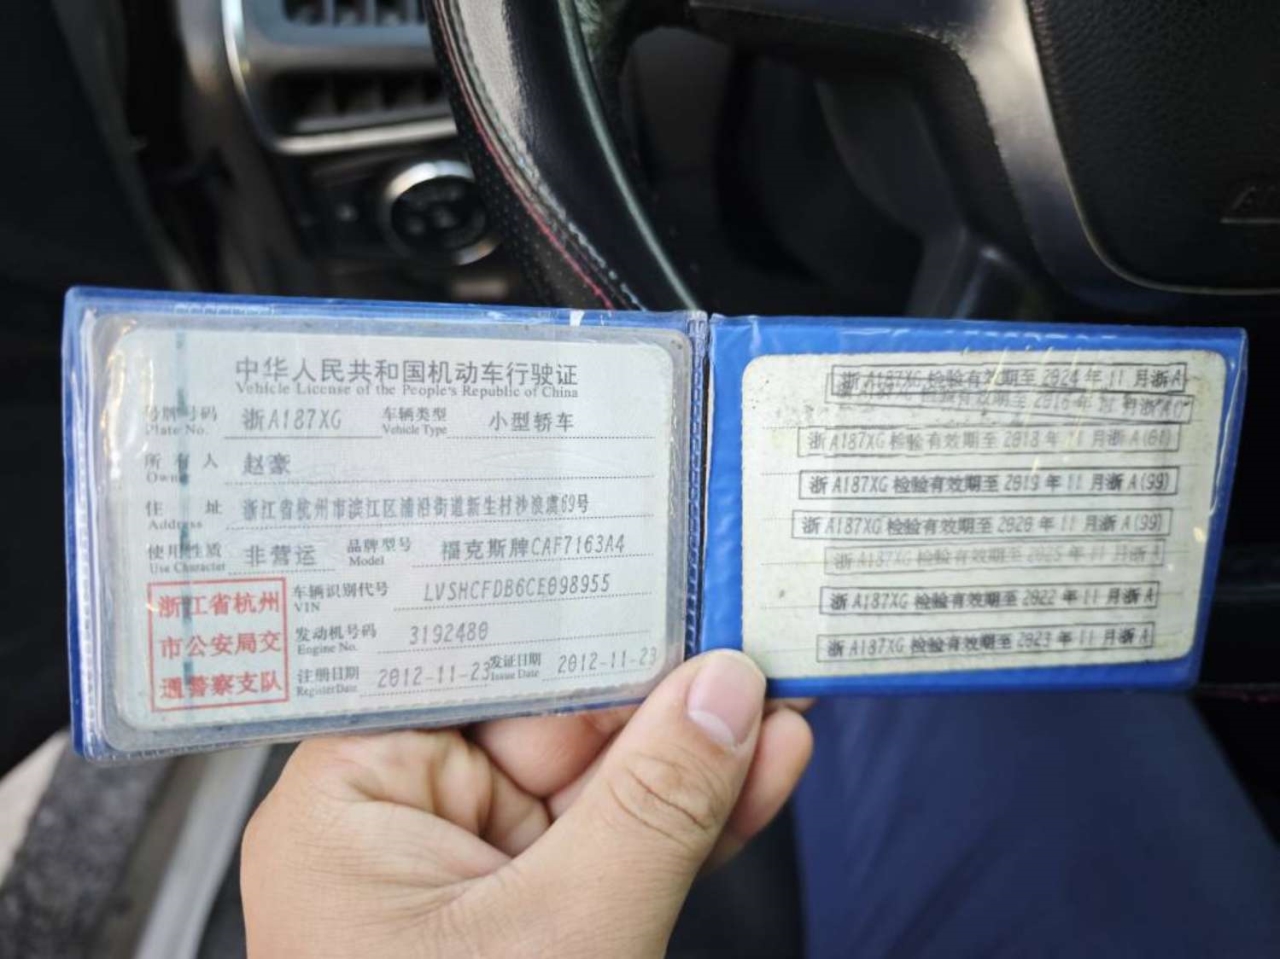 中华人民共和国机动车行驶证
Vehicle License of the People's Republic of China
号牌号码 浙A187XG 车辆类型 小型轿车
Plate No. Vehicle Type
所有人 赵豪
Owner
住址 浙江省杭州市滨江区浦沿街道新生村沙浪漊69号
Address
使用性质 非营运 品牌型号 福克斯牌CAF7163A4
Use Character Model
浙江省杭州
市公安局交
通警察支队
车辆识别代号 LVSHCFDB6CE098955
VIN
发动机号码 3192480
Engine No.
注册日期 2012-11-23 发证日期 2012-11-23
Register Date Issue Date
浙A187XG 检验有效期至 2024 年 11 月浙A
浙A187XG 检验有效期至 2018 年 11 月浙A(01)
浙A187XG 检验有效期至 2019 年 11 月浙A(99)
浙A187XG 检验有效期至 2020 年 11 月浙A(99)
浙A187XG 检验有效期至 2025 年 11 月浙A
浙A187XG 检验有效期至 2022 年 11 月浙A
浙A187XG 检验有效期至 2023 年 11 月浙A